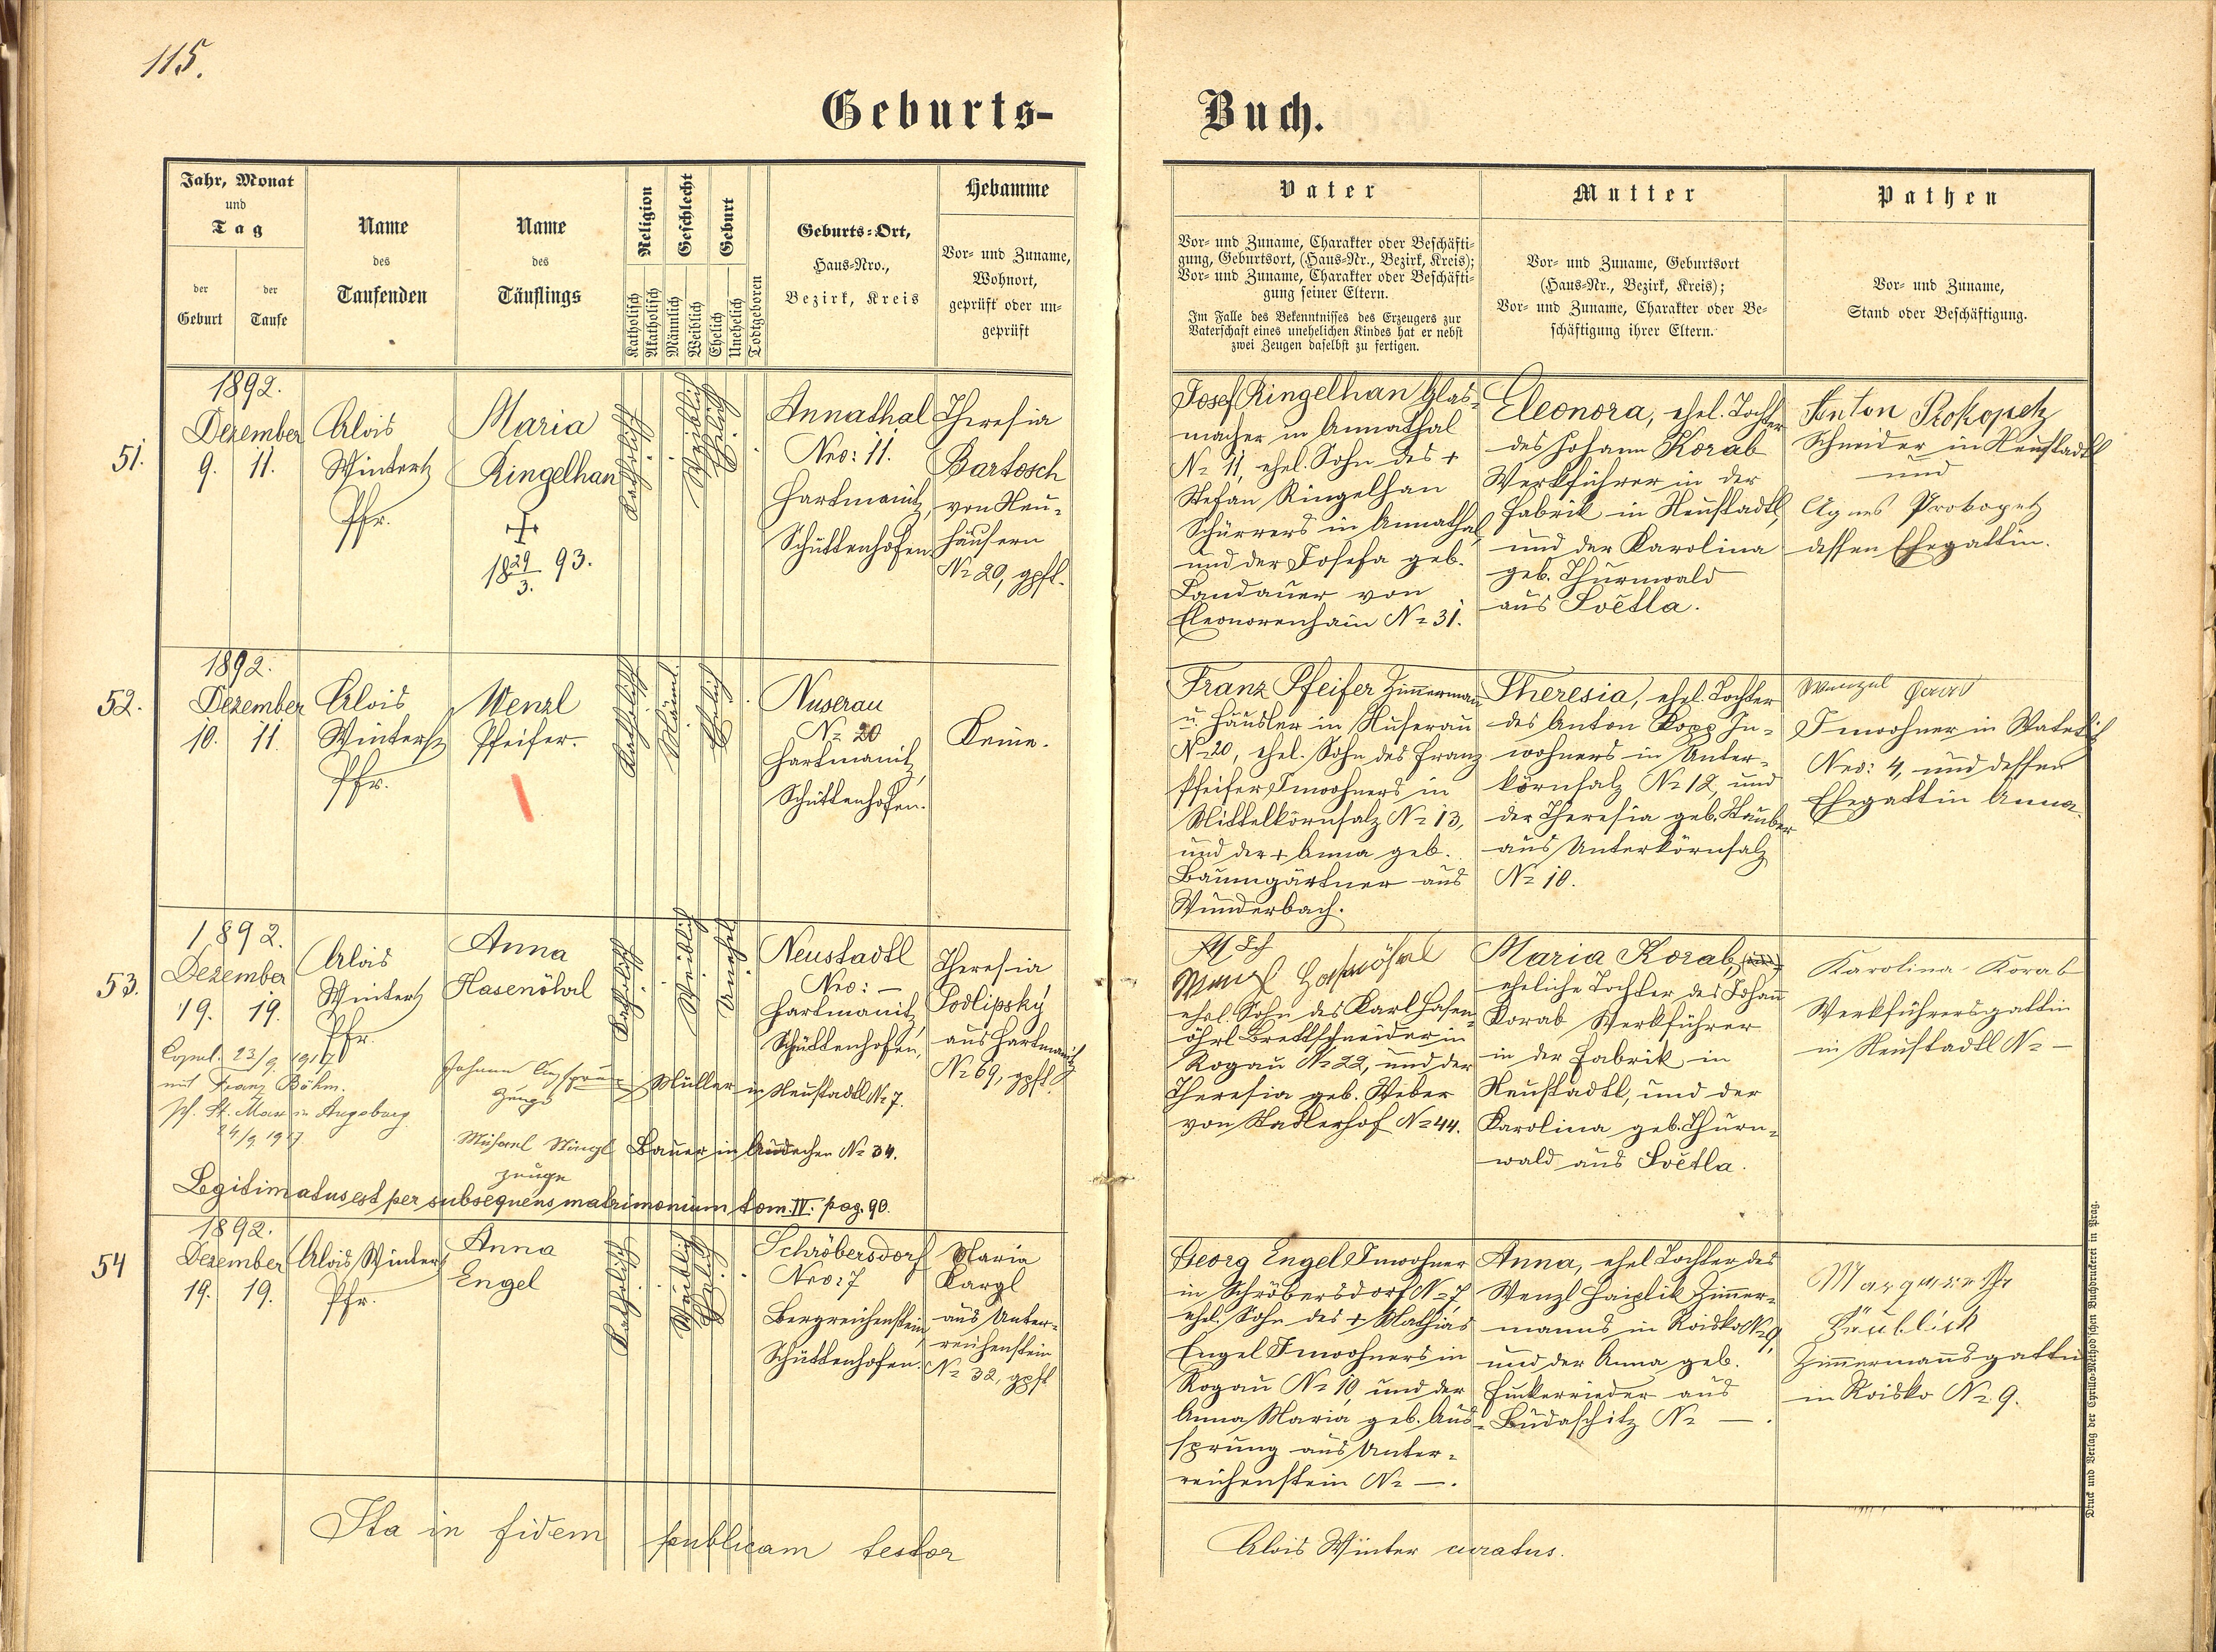 115.
Geburts-
Buch.
Jahr, Monat
und
Tag
der
Geburt
der
Taufe
Name
des
Taufenden
Name
des
Täuflings
Religion
Katholisch
Akatholisch
Geschlecht
Männlich
Weiblich
Geburt
Ehelich
Unehelich
Todtgeboren
Geburts-Ort,
Haus-Nro.,
Bezirk, Kreis
Hebamme
Vor- und Zuname,
Wohnort,
geprüft oder un-
geprüft
Vater
Vor- und Zuname, Charakter oder Beschäfti-
gung, Geburtsort, (Haus-Nr., Bezirk, Kreis);
Vor- und Zuname, Charakter oder Beschäfti-
gung seiner Eltern.
Im Falle des Bekenntnisses des Erzeugers zur
Vaterschaft eines unehelichen Kindes hat er nebst
zwei Zeugen daselbst zu fertigen.
Mutter
Vor- und Zuname, Geburtsort
(Haus-Nr., Bezirk, Kreis);
Vor- und Zuname, Charakter oder Be-
schäftigung ihrer Eltern.
Pathen
Vor- und Zuname,
Stand oder Beschäftigung.
51.
1892.
Dezember
9. 11.
Alois
Wintertz
Pfr.
Maria
Ringelhan
+
18 29/3. 93.
Katholisch
Weiblich
Ehelich
Annathal
Nro: 11.
Hartmanitz,
Schüttenhofen
Theresia
Bartosch
von Neu-
häusern
No 20, gpft.
Josef Ringelhan Glas-
macher in Annathal
No 11, ehel. Sohn des +
Stefan Ringelhan
Schürrers in Annathal
und der Josefa geb.
Landauer von
Eleonorenhain No 31.
Eleonora, ehel. Tochter
des Johann Korab
Werkführer in der
Fabrik in Neustadtl,
und der Karolina
geb. Thurnwald
aus Světla.
Anton Prokopetz
Schneider in Neustadtl
und
Agnes Prokopetz
dessen Ehegattin.
52.
1892.
Dezember
10. 11.
Alois
Wintertz
Pfr.
Wenzl
Pfeifer.
Katholisch
Männl.
Ehelich
Nuserau
No 20
Hartmanitz,
Schüttenhofen.
Keine.
Franz Pfeifer Zimmerman
u. Häusler in Nuserau
No 20, ehel. Sohn des Franz
Pfeifer Inwohners in
Mittelkörnsalz No 13,
und der + Anna geb.
Baumgärtner aus
Wunderbach.
Theresia, ehel. Tochter
des Anton Kopp In-
wohners in Unter-
körnsalz No 12, und
der Theresia geb. Stauber
aus Unterkörnsalz
No 10.
Wenzel
Inwohner in Watetitz
Nro: 4, und dessen
Ehegattin Anna.
53.
1892.
Dezember
19. 19.
Alois
Wintertz
Pfr.
Anna
Hasenöhrl
Katholisch
Weiblich
Unehel.
Neustadtl
Nro: —
Hartmanitz,
Schüttenhofen,
Theresia
Podlipsky
aus Hartmanitz
No 69, gpft.
Copul. 23/9 1917
mit Franz Böhm.
pf. St. Max in Augsburg
24/9 1917
Johann
Zeuge
Müller in Neustadtl No 7.
Bauer in No 34.
Zeuge
Legitimatus est per subsequens matrimonium tom. IV. pag. 90.
Ich
Wenzl Hasenöhrl
ehel. Sohn des Karl Hasen-
öhrl Brettschneider in
Rogau No 22, und der
Theresia geb. Weber
von Stadlerhof No 44.
Maria Korab,
eheliche Tochter des Johann
Korab Werkführer
in der Fabrik in
Neustadtl, und der
Karolina geb. Thurn-
wald aus Světla.
Karolina Korab
Werkführersgattin
in Neustadtl No —
54
1892.
Dezember
19. 19.
Alois Wintertz
Pfr.
Anna
Engel
Katholisch
Weiblich
Ehelich
Schröbersdorf
Nro: 7
Bergreichenstein,
Schüttenhofen.
Maria
Kargl
aus Unter-
reichenstein
No 32, gpft
Georg Engel Inwohner
in Schröbersdorf No 7,
ehel. Sohn des + Mathias
Engel Inwohners in
Rogau No 10, und der
Anna Maria geb. Aus-
sprung aus Unter-
reichenstein No —.
Anna, ehel Tochter des
Wenzl Haiplik Zimmer-
manns in Roisko No 9,
und der Anna geb.
Huckerrieder aus
Budaschitz No —.
Margareth
Zimmermannsgattin
in Roisko No 9.
Ita in fidem publicam testor
Alois Winter curatus.
Druck und Verlag der Cyrillo-Method'schen Buchdruckerei in Prag.